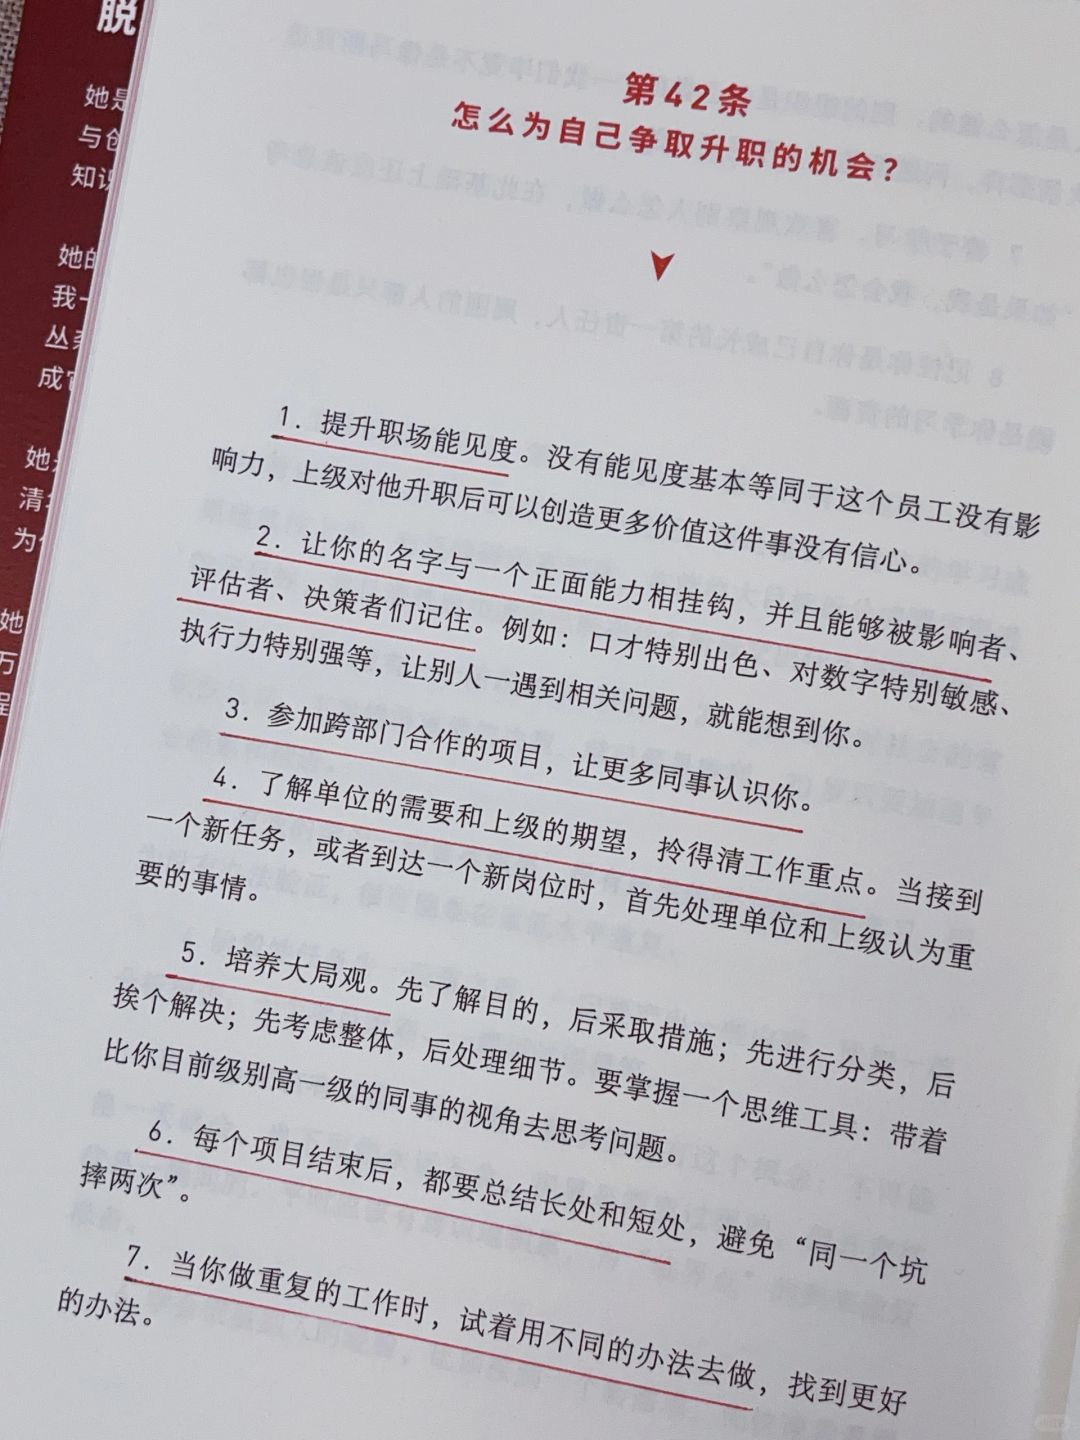 脱
她是
与创
知识
她的
我一
丛
成
她
清华
为
她
万
程
第42条
怎么为自己争取升职的机会？
1. 提升职场能见度。没有能见度基本等同于这个员工没有影
响力，上级对他升职后可以创造更多价值这件事没有信心。
2. 让你的名字与一个正面能力相挂钩，并且能够被影响者、
评估者、决策者们记住。例如：口才特别出色、对数字特别敏感、
执行力特别强等，让别人一遇到相关问题，就能想到你。
3. 参加跨部门合作的项目，让更多同事认识你。
4. 了解单位的需要和上级的期望，拎得清工作重点。当接到
一个新任务，或者到达一个新岗位时，首先处理单位和上级认为重
要的事情。
5. 培养大局观。先了解目的，后采取措施；先进行分类，后
挨个解决；先考虑整体，后处理细节。要掌握一个思维工具：带着
比你目前级别高一级的同事的视角去思考问题。
6. 每个项目结束后，都要总结长处和短处，避免“同一个坑
摔两次”。
7. 当你做重复的工作时，试着用不同的办法去做，找到更好
的办法。